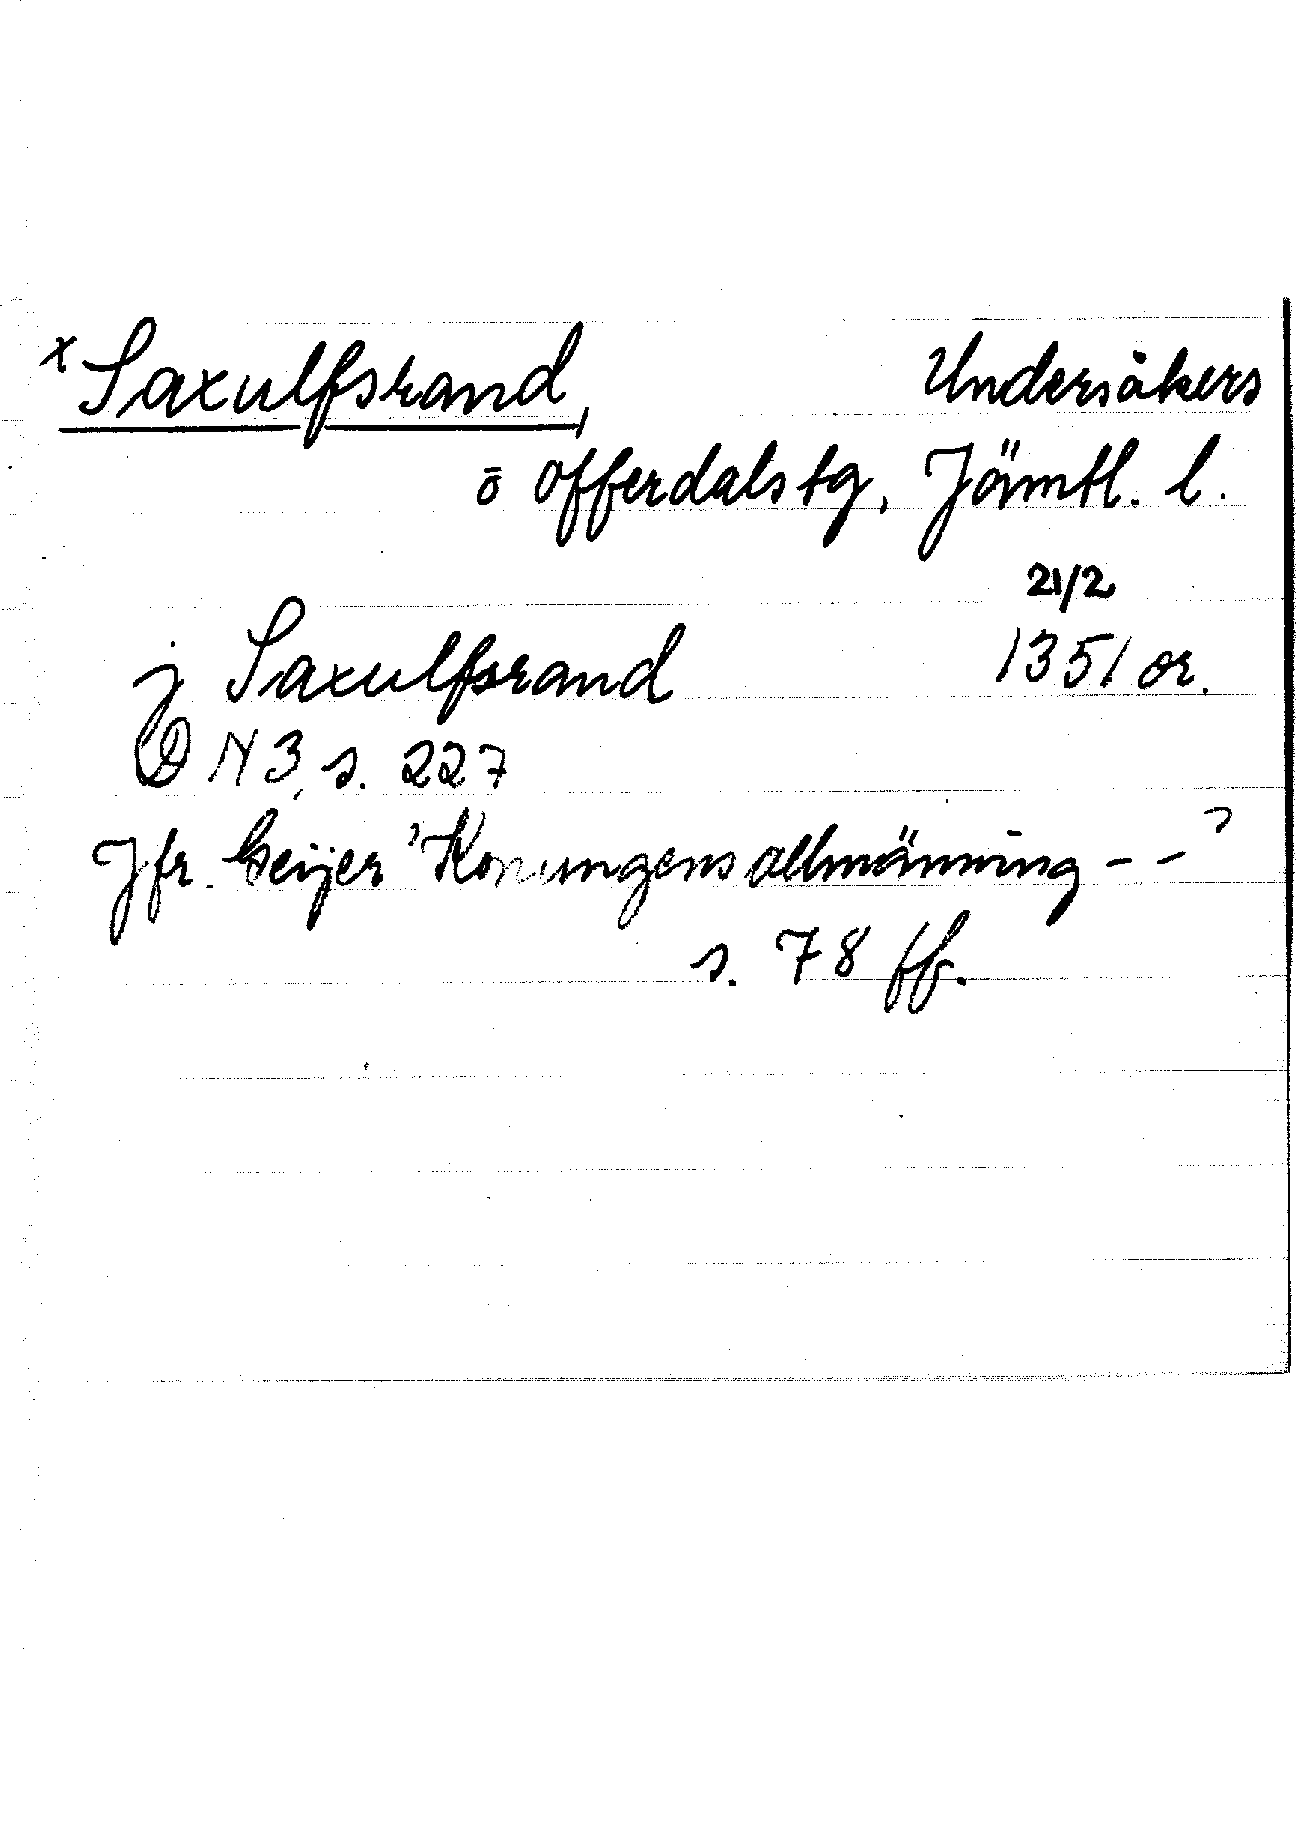 x Saxulfsrand, Undersåkers
ō Offerdals tg, Jämtl. l.
21/2
j Saxulfsrand 1351 or.
DN 3, s. 227
Jfr. Geijer "Konungens allmänning - - "
s. 78 ff.